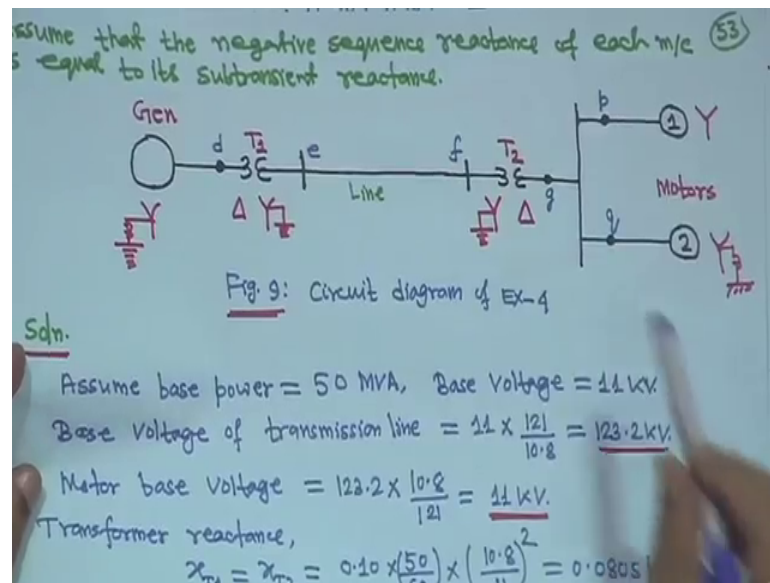 ssume that the negative sequence reactance of each m/c 53
s equal to its subtransient reactance.
Gen
d T1 e
Line
f T2 g
p 1 Y
Motors
q 2 Y
Δ Y
Y Δ
Fig. 9: Circuit diagram of EX-4
Soln.
Assume base power = 50 MVA, Base Voltage = 11 KV.
Base Voltage of transmission line = 11 × 121/10.8 = 123.2 KV.
Motor base Voltage = 123.2 × 10.8/121 = 11 KV.
Transformer reactance,
= 0.10 × (50/ ) × (10.8/ )² = 0.0805